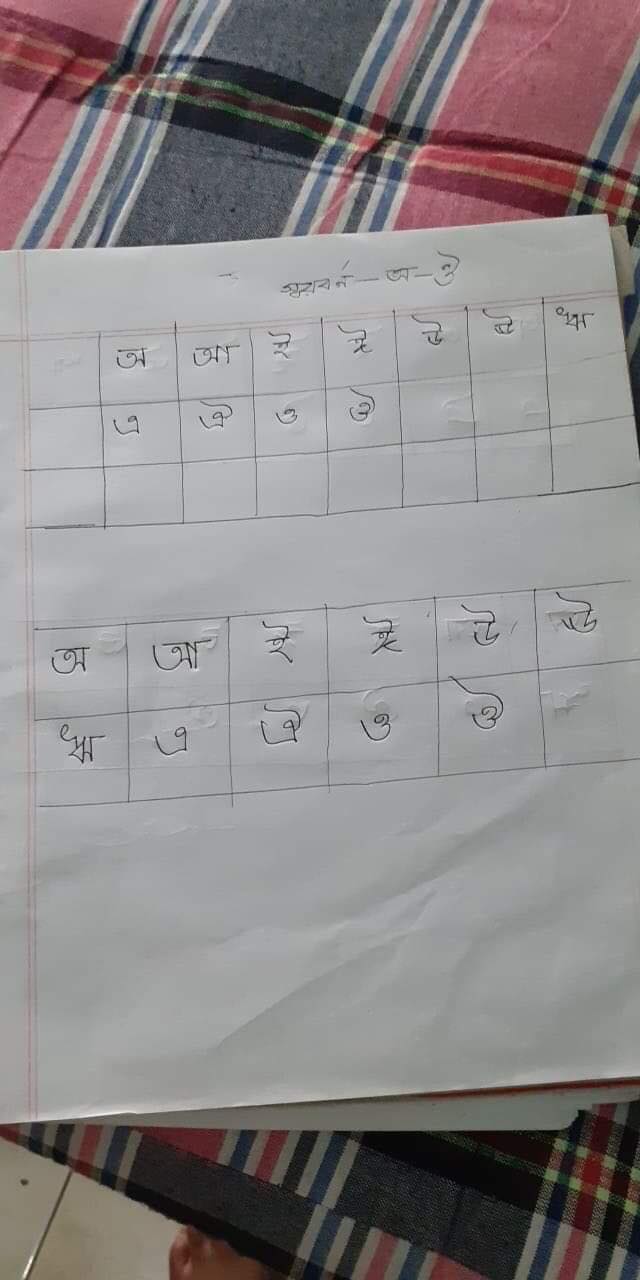 স্বরবর্ন — অ – ঔ
অ আ ই ঈ উ ঊ ঋ
এ ঐ ও ঔ
অ আ ই ঈ উ ঊ
ঋ এ ঐ ও ঔ